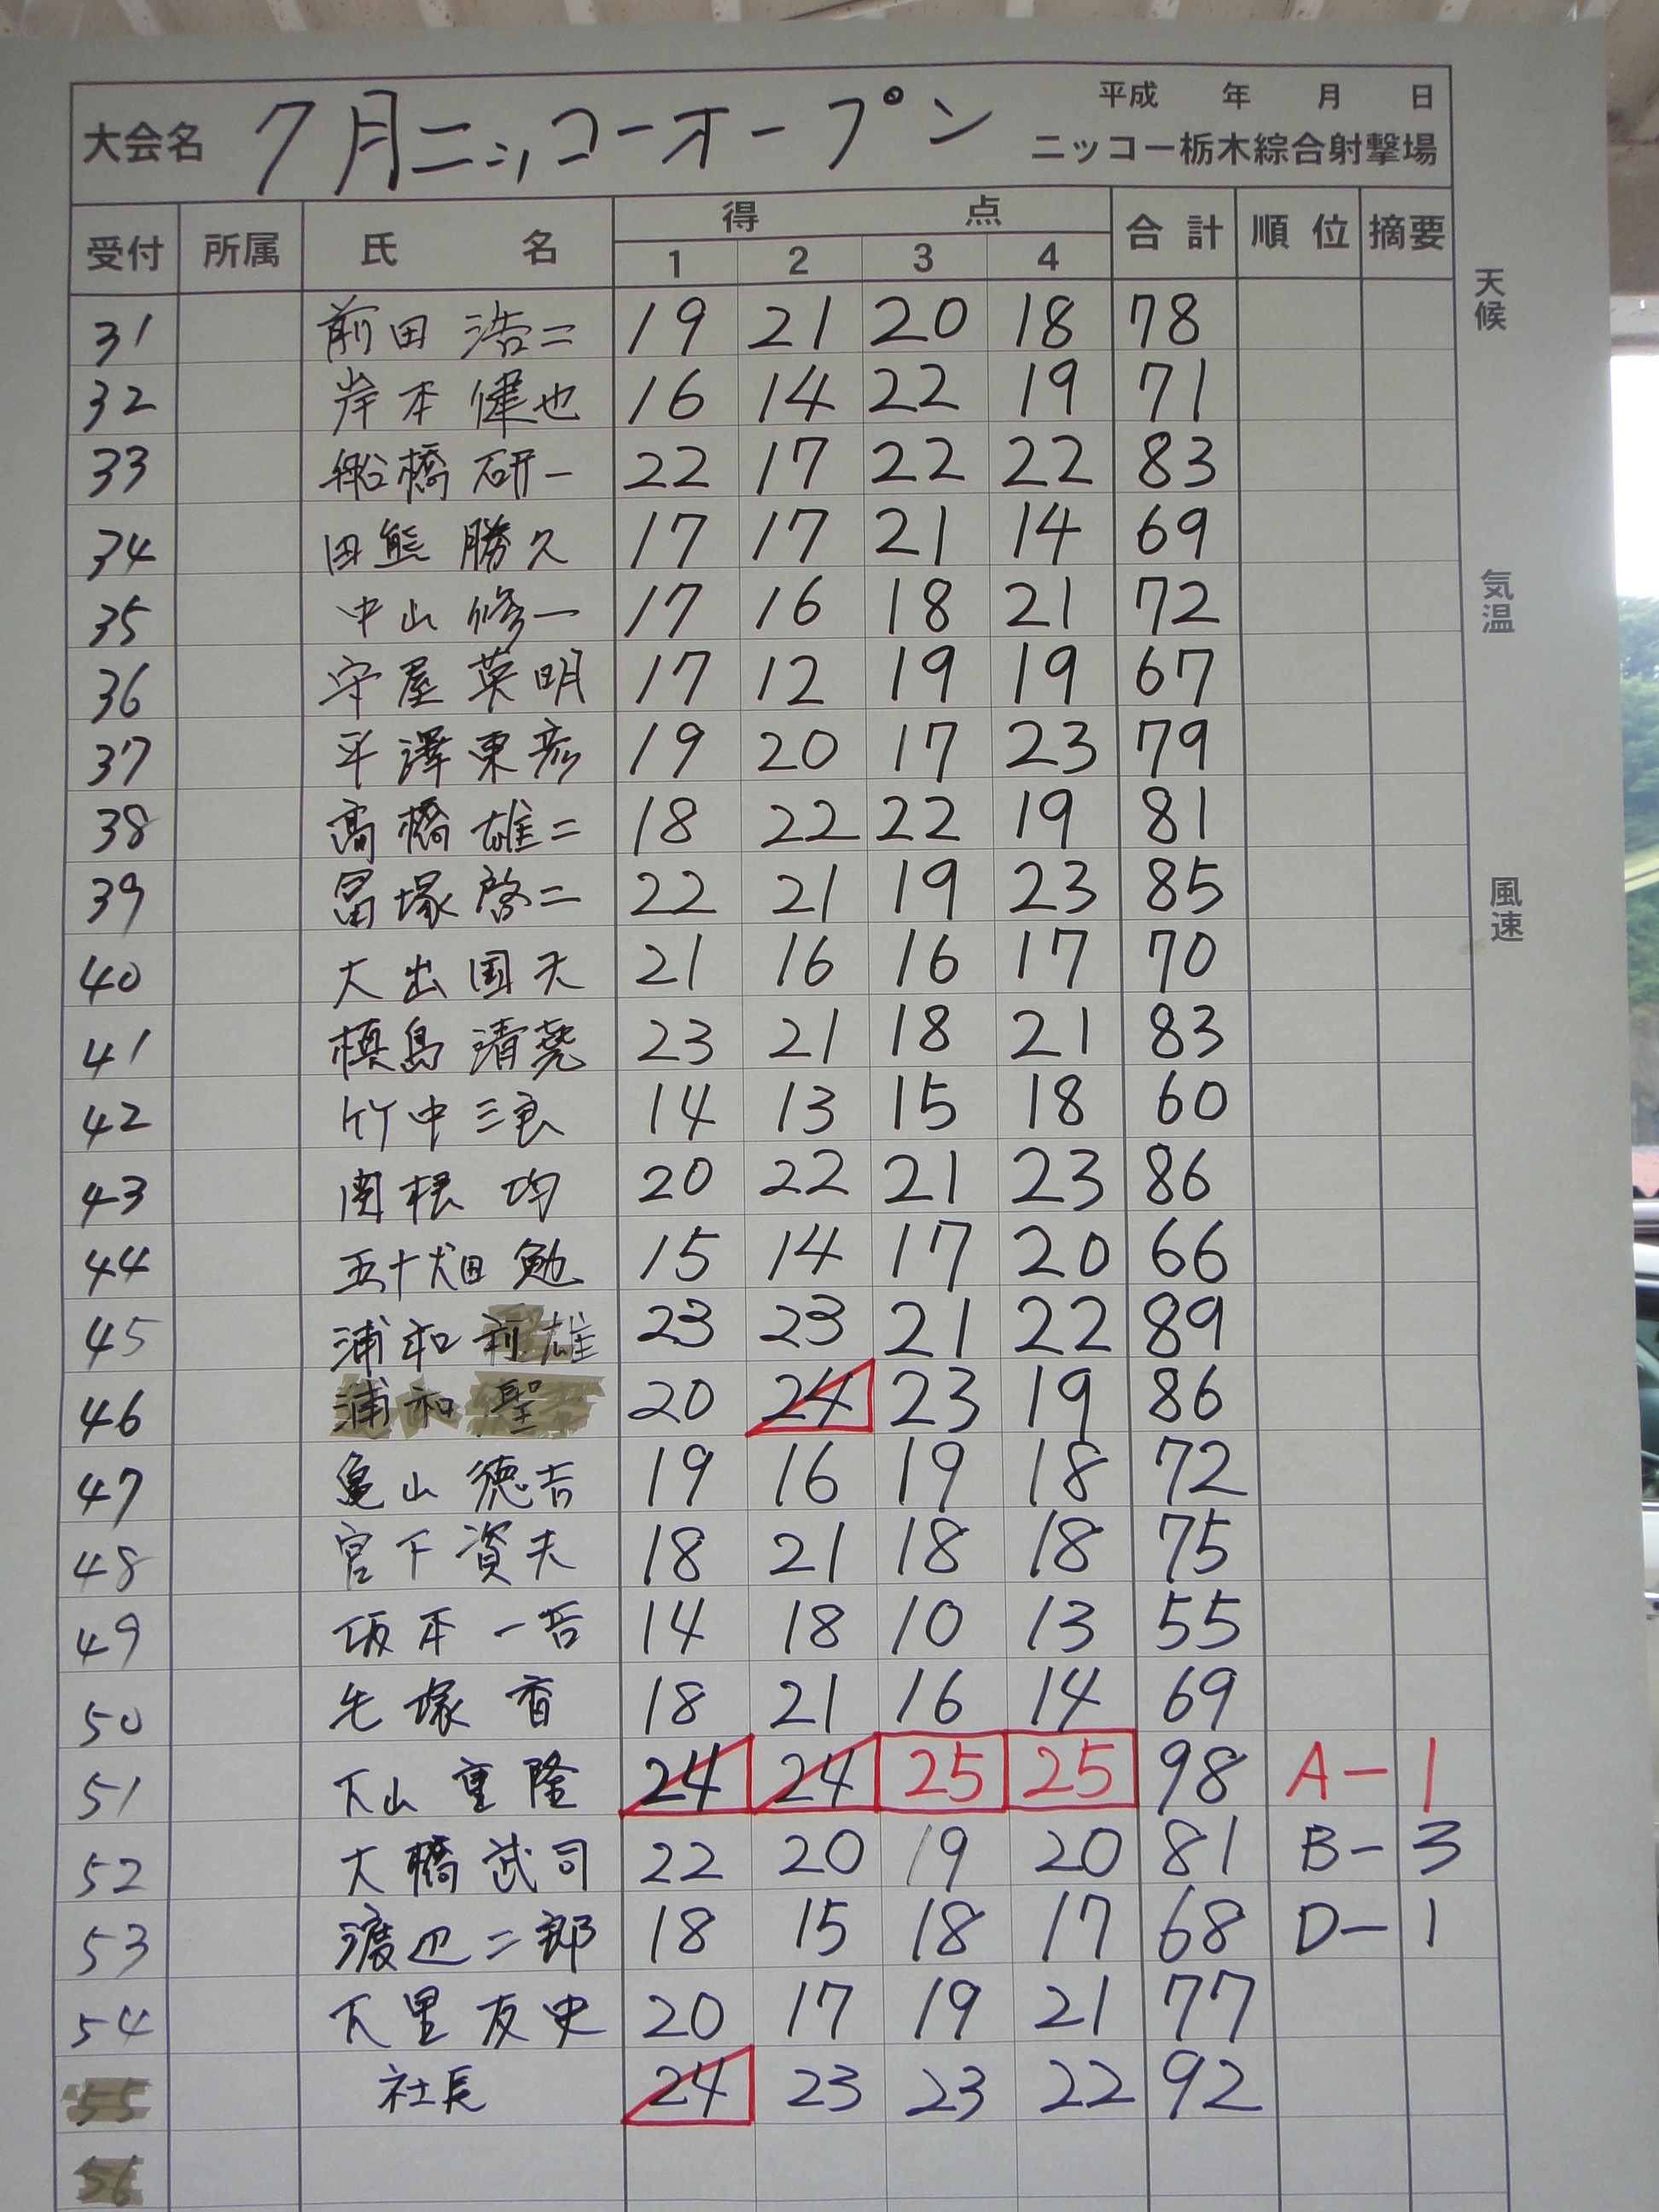 平成 年 月 日
大会名 7月ニッコーオープン ニッコー栃木綜合射撃場
受付 所属 氏 名 得 点 合計 順位 摘要
1 2 3 4
31 前田 浩二 19 21 20 18 78
32 岸本 健也 16 14 22 19 71
33 船橋 研一 22 17 22 22 83
34 田熊 勝久 17 17 21 14 69
35 中山 修一 17 16 18 21 72
36 守屋 英明 17 12 19 19 67
37 平澤 東彦 19 20 17 23 79
38 高橋 雄二 18 22 22 19 81
39 冨塚 啓二 22 21 19 23 85
40 大出 国夫 21 16 16 17 70
41 槙島 清堯 23 21 18 21 83
42 竹中 三良 14 13 15 18 60
43 関根 均 20 22 21 23 86
44 五十畑 勉 15 14 17 20 66
45 浦和 利雄 23 23 21 22 89
46 浦和 聖 20 24 23 19 86
47 亀山 徳吉 19 16 19 18 72
48 宮下 資夫 18 21 18 18 75
49 坂本 一吾 14 18 10 13 55
50 毛塚 香 18 21 16 14 69
51 下山 重隆 24 24 25 25 98 A-1
52 大橋 武司 22 20 19 20 81 B-3
53 渡辺 二郎 18 15 18 17 68 D-1
54 下里 友史 20 17 19 21 77
55 社長 24 23 23 22 92
56
天候
気温
風速